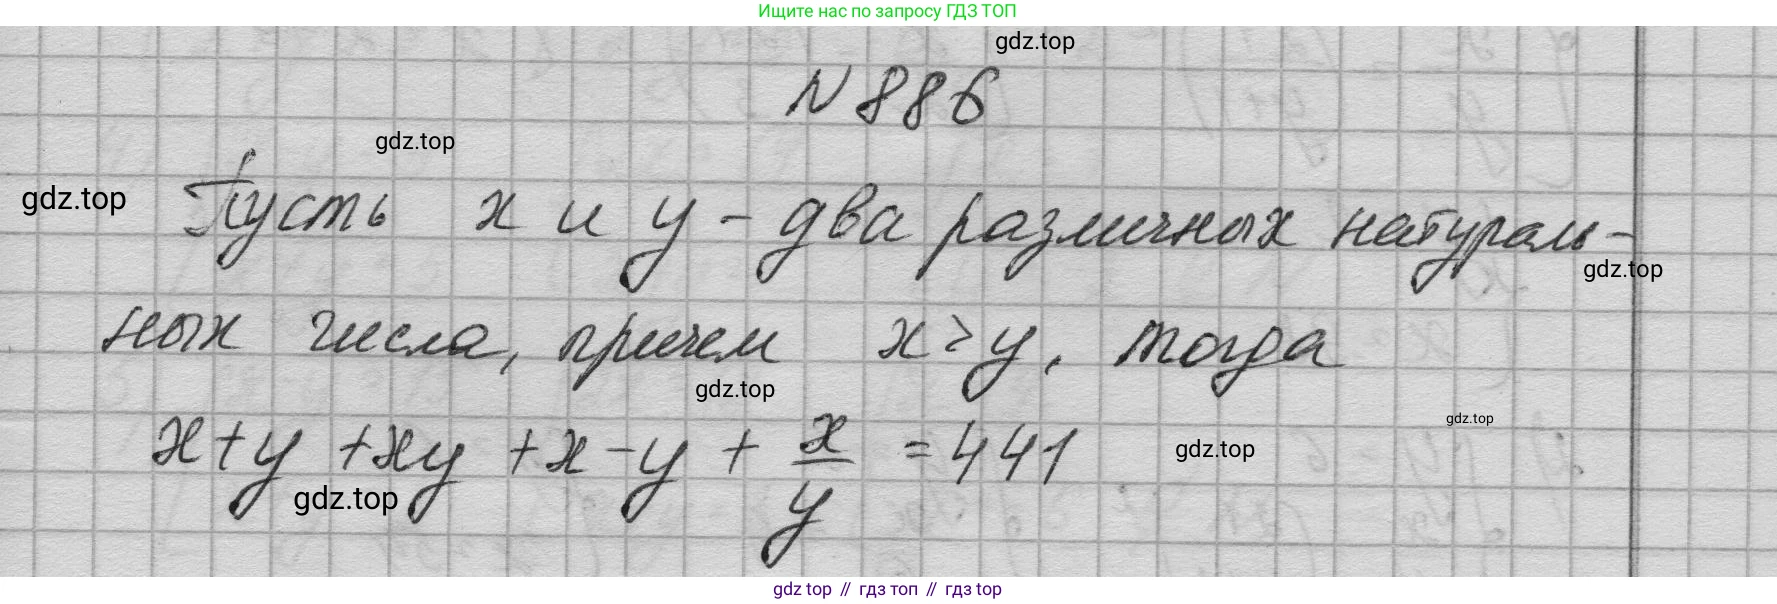 Ищите нас по запросу ГДЗ ТОП
gdz.top
N 886
gdz.top
gdz.top Пусть x и y - два различных натураль-
gdz.top
ных числа, причем x > y, тогда
gdz.top
gdz.top
x + y + xy + x - y + x/y = 441
gdz.top
gdz.top
gdz top // гдз топ // гдз top